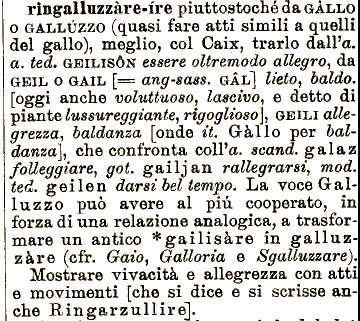 ringalluzzàre-íre piuttostoché da GÀLLO
o GALLÚZZO (quasi fare atti simili a quelli
del gallo), meglio, col Caix, trarlo dall'a.
a. ted. GEILISÔN essere oltremodo allegro, da
GEIL o GAIL [= ang-sass. GÂL] lieto, baldo.
[oggi anche voluttuoso, lascivo, e detto di
piante lussureggiante, rigoglioso], GEILI alle-
grezza, baldanza [onde it. Gàllo per bal-
danza], che confronta coll'a. scand. galaz
folleggiare, got. gailjan rallegrarsi, mod.
ted. geilen darsi bel tempo. La voce Gal-
luzzo può avere al piú cooperato, in
forza di una relazione analogica, a trasfor-
mare un antico *gailisàre in galluz-
zàre (cfr. Gaio, Galloria e Sgalluzzare).
Mostrare vivacità e allegrezza con atti
e movimenti [che si dice e si scrisse an-
che Ringarzullire].